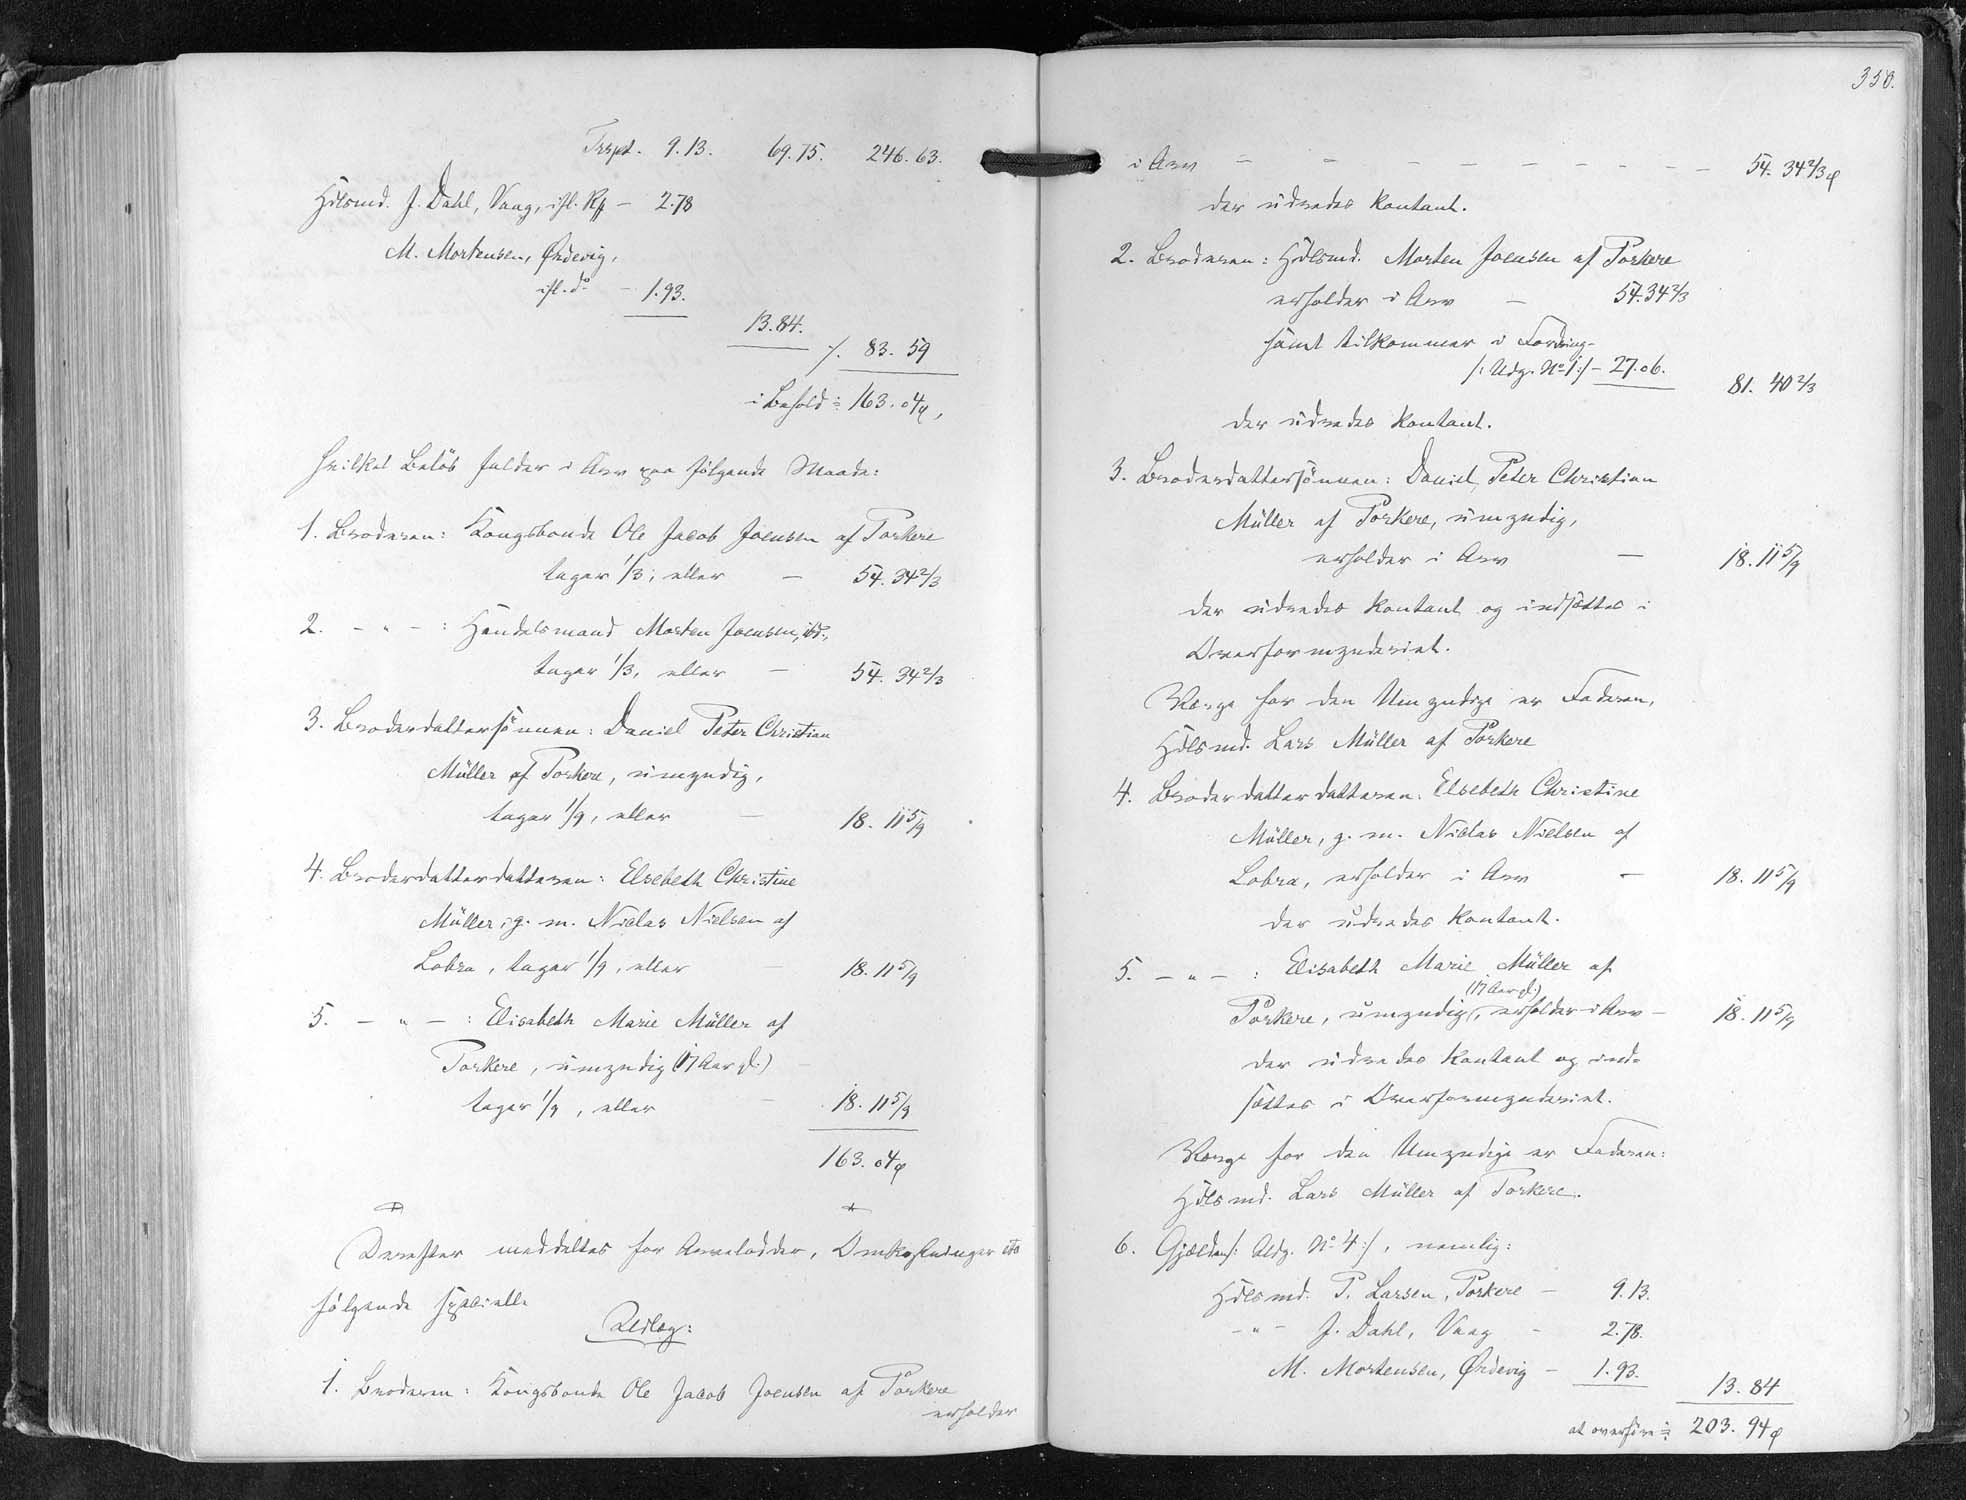 Trspt. 9.13. 69.75. 246.63.
Hdlsmd. J. Dahl, Vaag, ifl. Rg – 2.78
M. Mortensen, Ørdevig,
ifl. do – 1.93.
13.84.
./. 83.59
i Behold = 163.04ø,
hvilket Beløb falder i Arv paa følgende Maade:
1. Broderen: Kongsbonde Ole Jacob Joensen af Porkere
tager 1/3, eller – 54.34 2/3
2. – " – : Handelsmand Morten Joensen, ibd.,
tager 1/3, eller – 54.34 2/3
3. Broderdattersønnen: Daniel Peter Christian
Müller af Porkere, umyndig,
tager 1/9, eller – 18.11 5/9
4. Broderdatterdatteren: Elsebeth Christine
Müller, g. m. Niclas Nielsen af
Lobra, tager 1/9, eller – 18.11 5/9
5. – " – : Elisabeth Marie Müller af
Porkere, umyndig (17 Aar gl.)
tager 1/9, eller – 18.11 5/9
163.04ø
Derefter meddeltes for Arvelodder, Omkostninger etc
følgende specielle
Udlæg:
1. Broderen: Kongsbonde Ole Jacob Joensen af Porkere
erholder
350.
i Arv – – – – – – – – – 54.34 2/3ø
der udredes kontant.
2. Broderen: Hdlsmd. Morten Joensen af Porkere
erholder i Arv – 54.34 2/3
samt tilkommer i Fordring
/: Udg. No 1 :/ – 27.06.
81.40 2/3
der udredes kontant.
3. Broderdattersønnen: Daniel Peter Christian
Müller af Porkere, umyndig,
erholder i Arv – 18.11 5/9
der udredes kontant og indsættes i
Overformynderiet.
Værge for den Umyndige er Faderen,
Hdlsmd. Lars Müller af Porkere
4. Broderdatterdatteren: Elsebeth Christine
Müller, g. m. Niclas Nielsen af
Lobra, erholder i Arv – 18.11 5/9
der udredes kontant.
5. – " – : Elisabeth Marie Müller af
(17 Aar gl.)
Porkere, umyndig, erholder i Arv – 18.11 5/9
der udredes kontant og ind=
sættes i Overformynderiet.
Værge for den Umyndige er Faderen:
Hdlsmd. Lars Müller af Porkere.
6. Gjælden /: Udg. No 4 :/, nemlig:
Hdlsmd. P. Larsen, Porkere – 9.13.
– " – J. Dahl, Vaag – 2.78.
M. Mortensen, Ørdevig – 1.93.
13.84
at overføre = 203.94ø